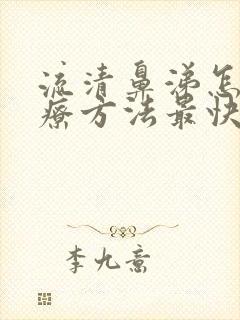 流清鼻涕怎
疗方法最快
李九意